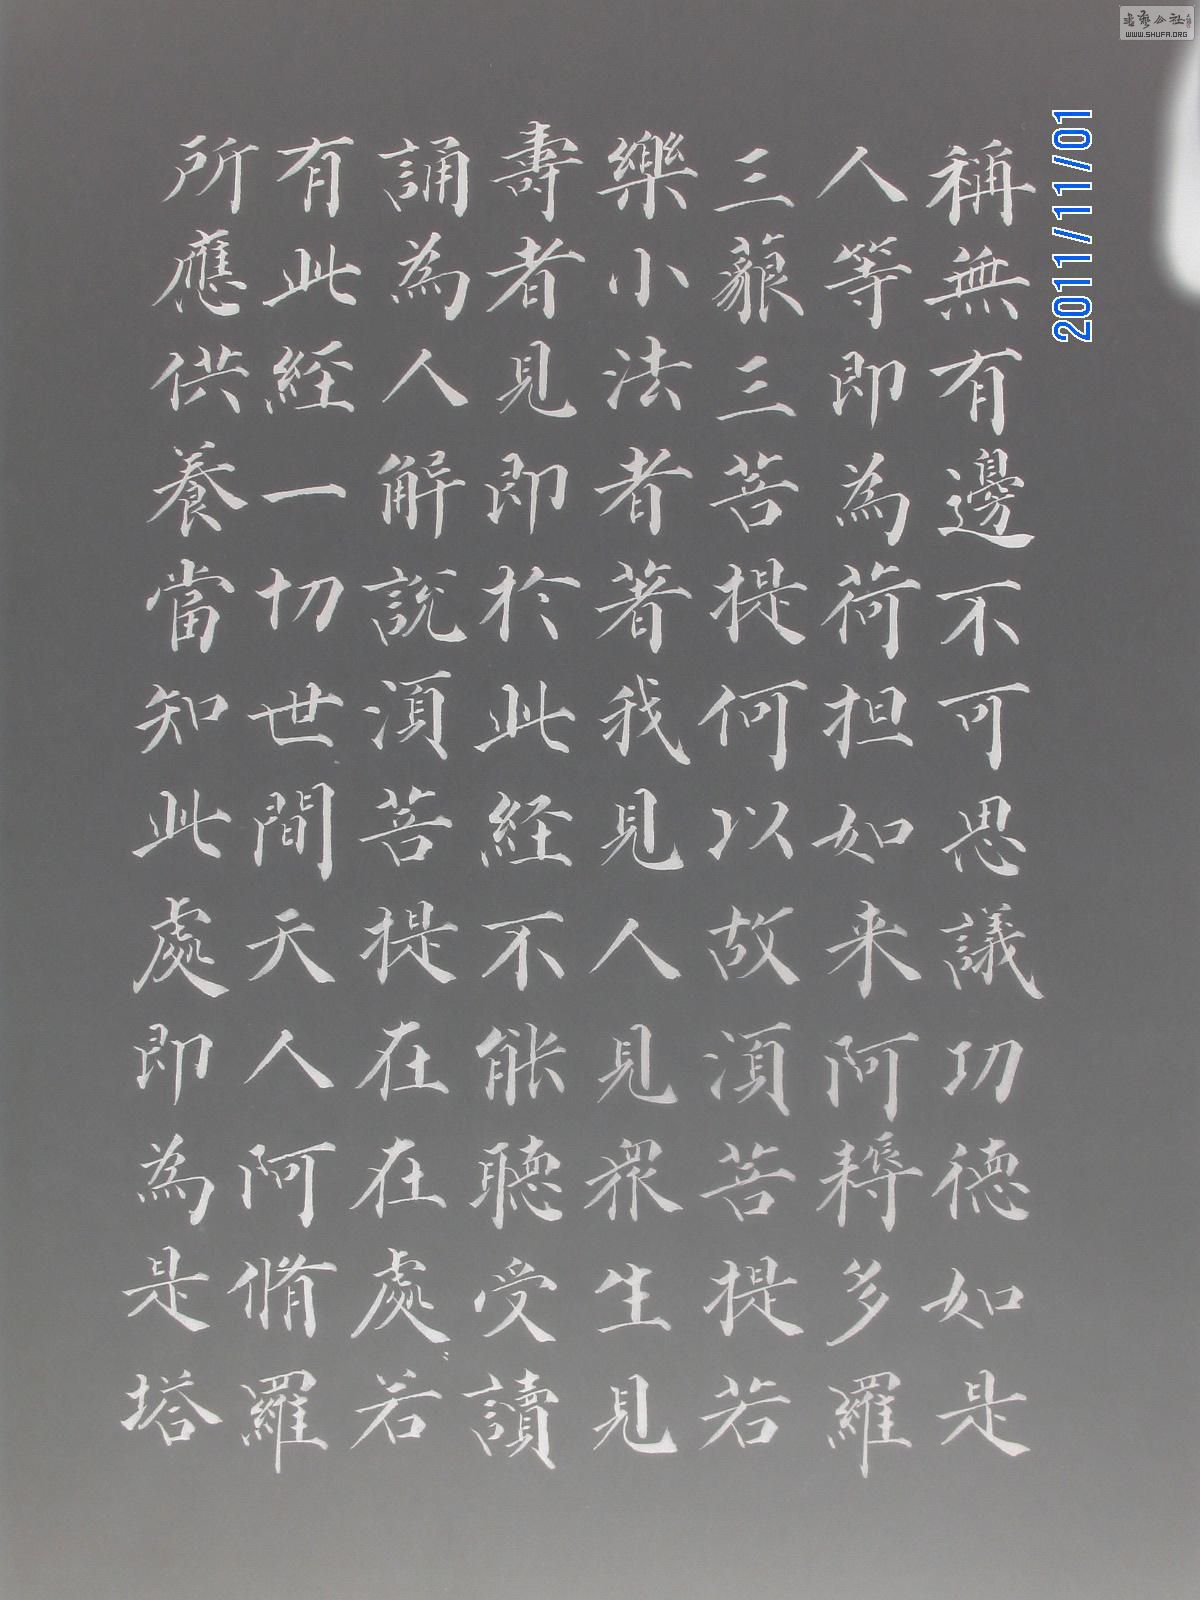 稱無有邊不可思議功德如是
人等即為荷担如来阿耨多羅
三藐三菩提何以故須菩提若
樂小法者著我見人見衆生見
壽者見即於此経不能聽受讀
誦為人解説須菩提在在處若
有此経一切世間天人阿脩羅
所應供養當知此處即為是塔
2011/11/01
WWW.SHUFA.ORG